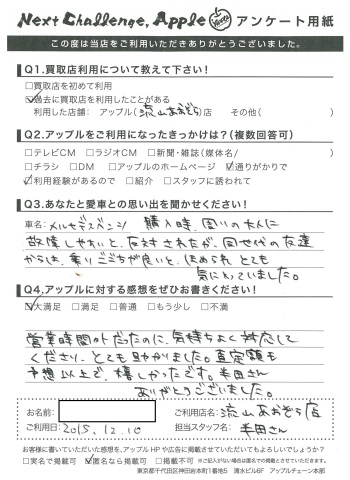 Next Challenge, Apple アンケート用紙
この度は当店をご利用いただきありがとうございました。
Q1.買取店利用について教えて下さい!
□買取店を初めて利用
☑過去に買取店を利用したことがある
利用した店舗: アップル(流山あおぞら)店 その他( )
Q2.アップルをご利用になったきっかけは?(複数回答可)
□テレビCM □ラジオCM □新聞・雑誌(媒体名/ )
□チラシ □DM □アップルのホームページ ☑通りがかりで
☑利用経験があるので □紹介 □スタッフに誘われて
Q3.あなたと愛車との思い出を聞かせください!
車名: メルセデスベンツ 購入時、周りの大人に
故障しやすいと、反対されたが、同世代の友達
からは、乗りごこちが良いと、ほめられ とても
気に入っていました。
Q4.アップルに対する感想をぜひお書きください!
☑大満足 □満足 □普通 □もう少し □不満
営業時間外だったのに、気持ちよく対応して
くださり、とても助かりました。査定額も
予想以上で、嬉しかったです。半田さん
ありがとうございました。
お名前:
ご利用日: 2015.12.10
ご利用店名: 流山あおぞら店
担当スタッフ名: 半田さん
お客様に書いていただいた感想を、アップルHPや広告に掲載させていただいてもよろしいでしょうか?
□実名で掲載可 ☑匿名なら掲載可 □掲載不可 ※ご記入がない場合は匿名での掲載とさせていただきます。
東京都千代田区神田岩本町1番地5 清水ビル8F アップルチェーン本部